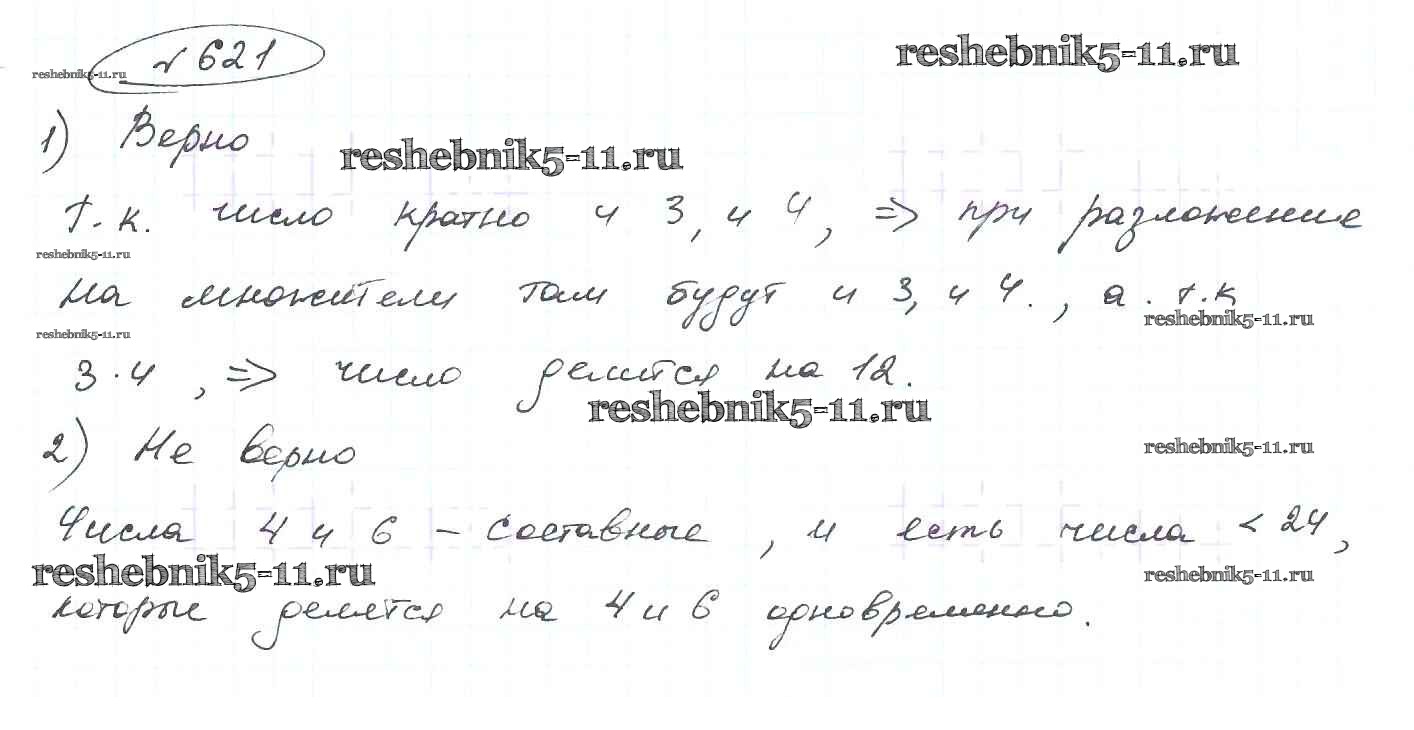 № 621
reshebnik5-11.ru
reshebnik5-11.ru
1) Верно
reshebnik5-11.ru
Т.к. число кратно и 3, и 4, => при разложение
reshebnik5-11.ru
на множители там будут и 3, и 4., а. т.к
reshebnik5-11.ru
reshebnik5-11.ru
3·4, => число делится на 12.
reshebnik5-11.ru
2) Не верно
reshebnik5-11.ru
Числа 4 и 6 – составные, и есть числа < 24,
reshebnik5-11.ru
reshebnik5-11.ru
которые делятся на 4 и 6 одновременно.